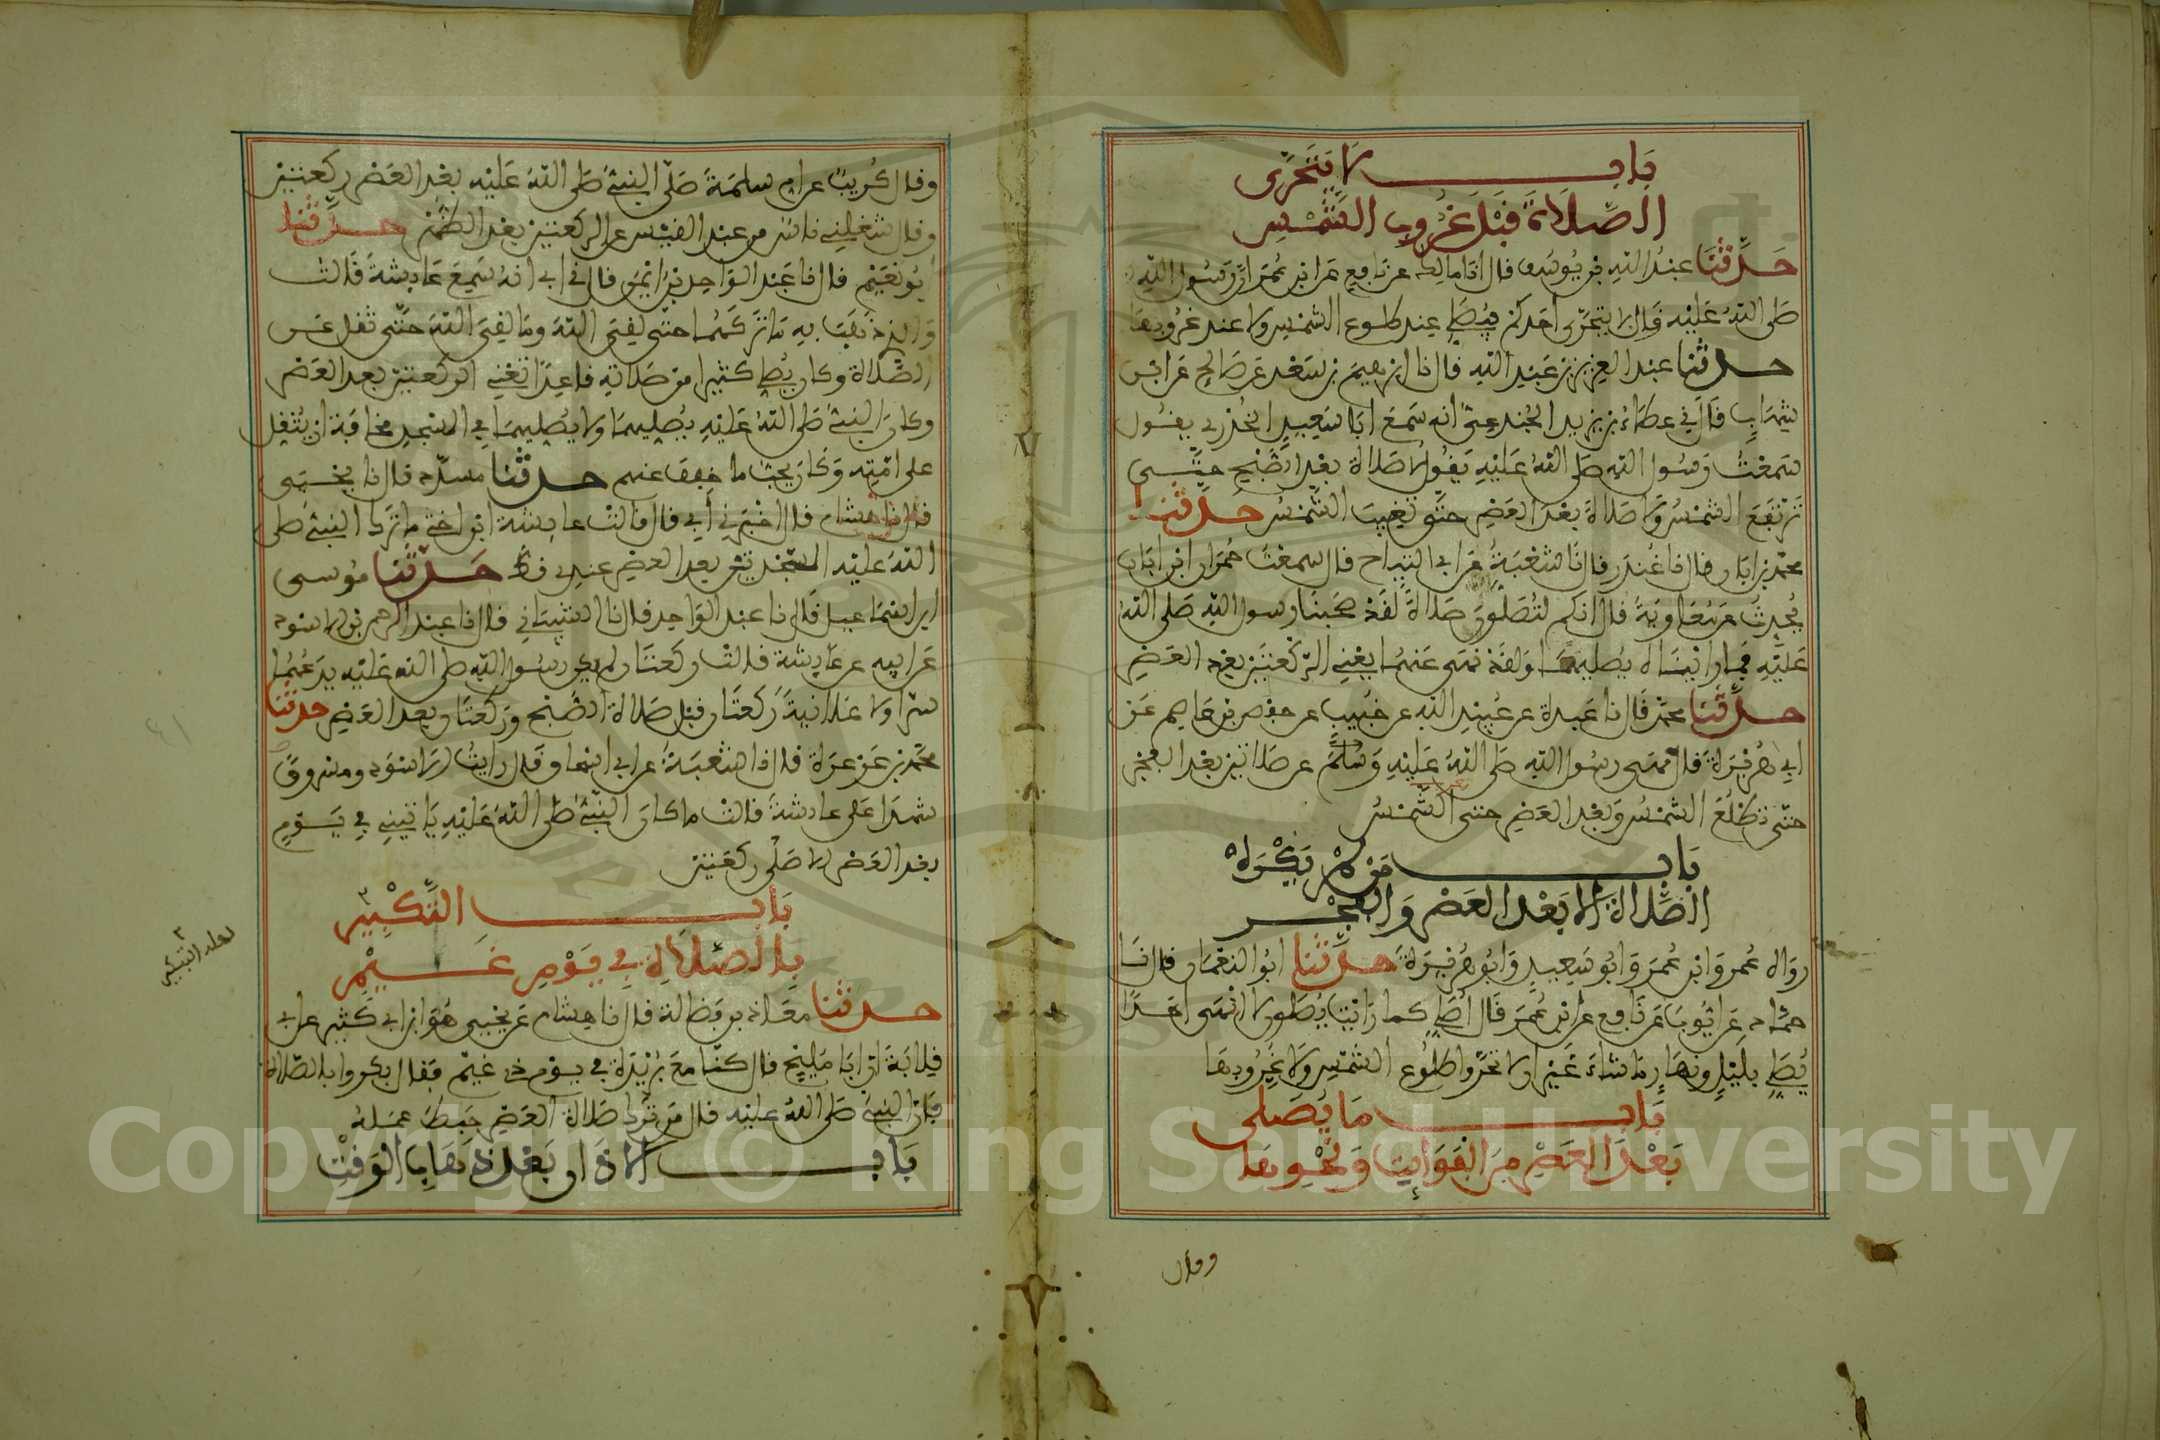 باب لا يتحرى
الصلاة قبل غروب الشمس
حدثنا عبد الله بن يوسف قال انا مالك عن نافع عن ابن عمر ان رسول الله
صلى الله عليه قال لا يتحرى احدكم فيصلي عند طلوع الشمس ولا عند غروبها
حدثنا عبد العزيز بن عبد الله قال نا ابرهيم بن سعد عن صالح عن ابن
شهاب قال ني عطاء بن يزيد الجندعي انه سمع ابا سعيد الخدري يقول
سمعت رسول الله صلى الله عليه يقول لا صلاة بعد الصبح حتى
ترتفع الشمس ولا صلاة بعد العصر حتى تغيب الشمس حدثنا
محمد بن ابان قال نا غندر قال نا شعبة عن ابي التياح قال سمعت حمران ابن ابان
يحدث عن معاوية قال انكم لتصلون صلاة لقد صحبنا رسول الله صلى الله
عليه فما رايناه يصليهما ولقد نهى عنهما يعني الركعتين بعد العصر
حدثنا محمد قال نا عبدة عن عبيد الله عن خبيب عن حفص بن عاصم عن
ابي هريرة قال نهى رسول الله صلى الله عليه وسلم عن صلاتين بعد الفجر
حتى تطلع الشمس وبعد العصر حتى الشمس
باب من لم يكره
الصلاة الا بعد العصر والفجر
رواه عمر وابن عمر وابو سعيد وابو هريرة حدثنا ابو النعمان قال نا
حماد عن ايوب عن نافع عن ابن عمر قال اصلي كما رايت يصلون لا انهى احدا
يصلي بليل ونهار ما شاء غير ان لا تحروا طلوع الشمس ولا غروبها
باب ما يصلى
بعد العصر من الفوايت ونحوها
وقال
وقال كريب عن ام سلمة صلى النبي صلى الله عليه بعد العصر ركعتين
وقال شغلني ناس من عبد القيس عن الركعتين بعد الظهر حدثنا
ابو نعيم قال نا عبد الواحد بن ايمن قال ني ابي انه سمع عايشة قالت
والذي ذهب به ما تركهما حتى لقي الله وما لقي الله حتى ثقل عن
الصلاة وكان يصلي كثيرا من صلاته قاعدا تعني الركعتين بعد العصر
وكان النبي صلى الله عليه يصليهما ولا يصليهما في المسجد مخافة ان يثقل
على امته وكان يحب ما خفف عنهم حدثنا مسدد قال نا يحيى
قال نا هشام قال اخبرني ابي قال قالت عايشة ابن اختي ما ترك النبي صلى
الله عليه السجدتين بعد العصر عندي قط حدثنا موسى
ابن اسماعيل قال نا عبد الواحد قال نا الشيباني قال نا عبد الرحمن بن الاسود
عن ابيه عن عايشة قالت ركعتان لم يكن رسول الله صلى الله عليه يدعهما
سرا ولا علانية ركعتان قبل صلاة الصبح وركعتان بعد العصر حدثنا
محمد بن عرعرة قال نا شعبة عن ابي اسحاق قال رايت الاسود ومسروق
شهدا على عايشة قالت ما كان النبي صلى الله عليه ياتيني في يوم
بعد العصر الا صلى ركعتين
باب التكبير
بالصلاة في يوم غيم
حدثنا معاذ بن فضالة قال نا هشام عن يحيى هو ابن ابي كثير عن ابي
قلابة ان ابا مليح قال كنا مع بريدة في يوم ذي غيم فقال بكروا بالصلاة
فان النبي صلى الله عليه قال من ترك صلاة العصر حبط عمله
باب الاذان بعد ذهاب الوقت
لعله التبكير
Copyright © King Saud University